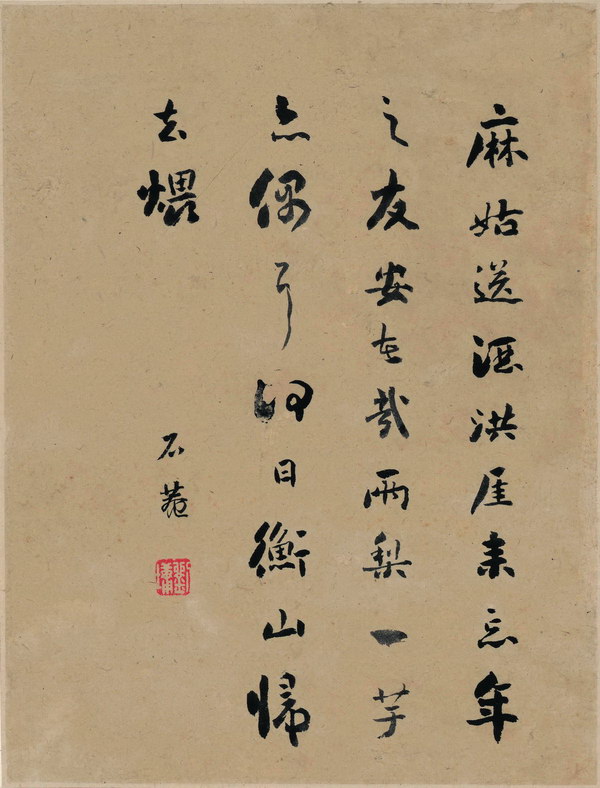 麻姑送酒洪厓来忘年
之友安在哉两梨一芋
亦偶尔何日衡山归
去煨
石菴